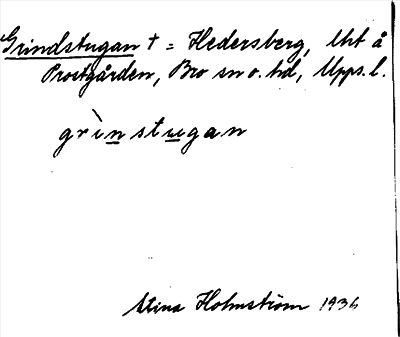 Grindstugan † = Hedersberg, lht å
Prostgården, Bro sn o. hd, Upps. l.
grìnstugan
Stina Holmström 1936